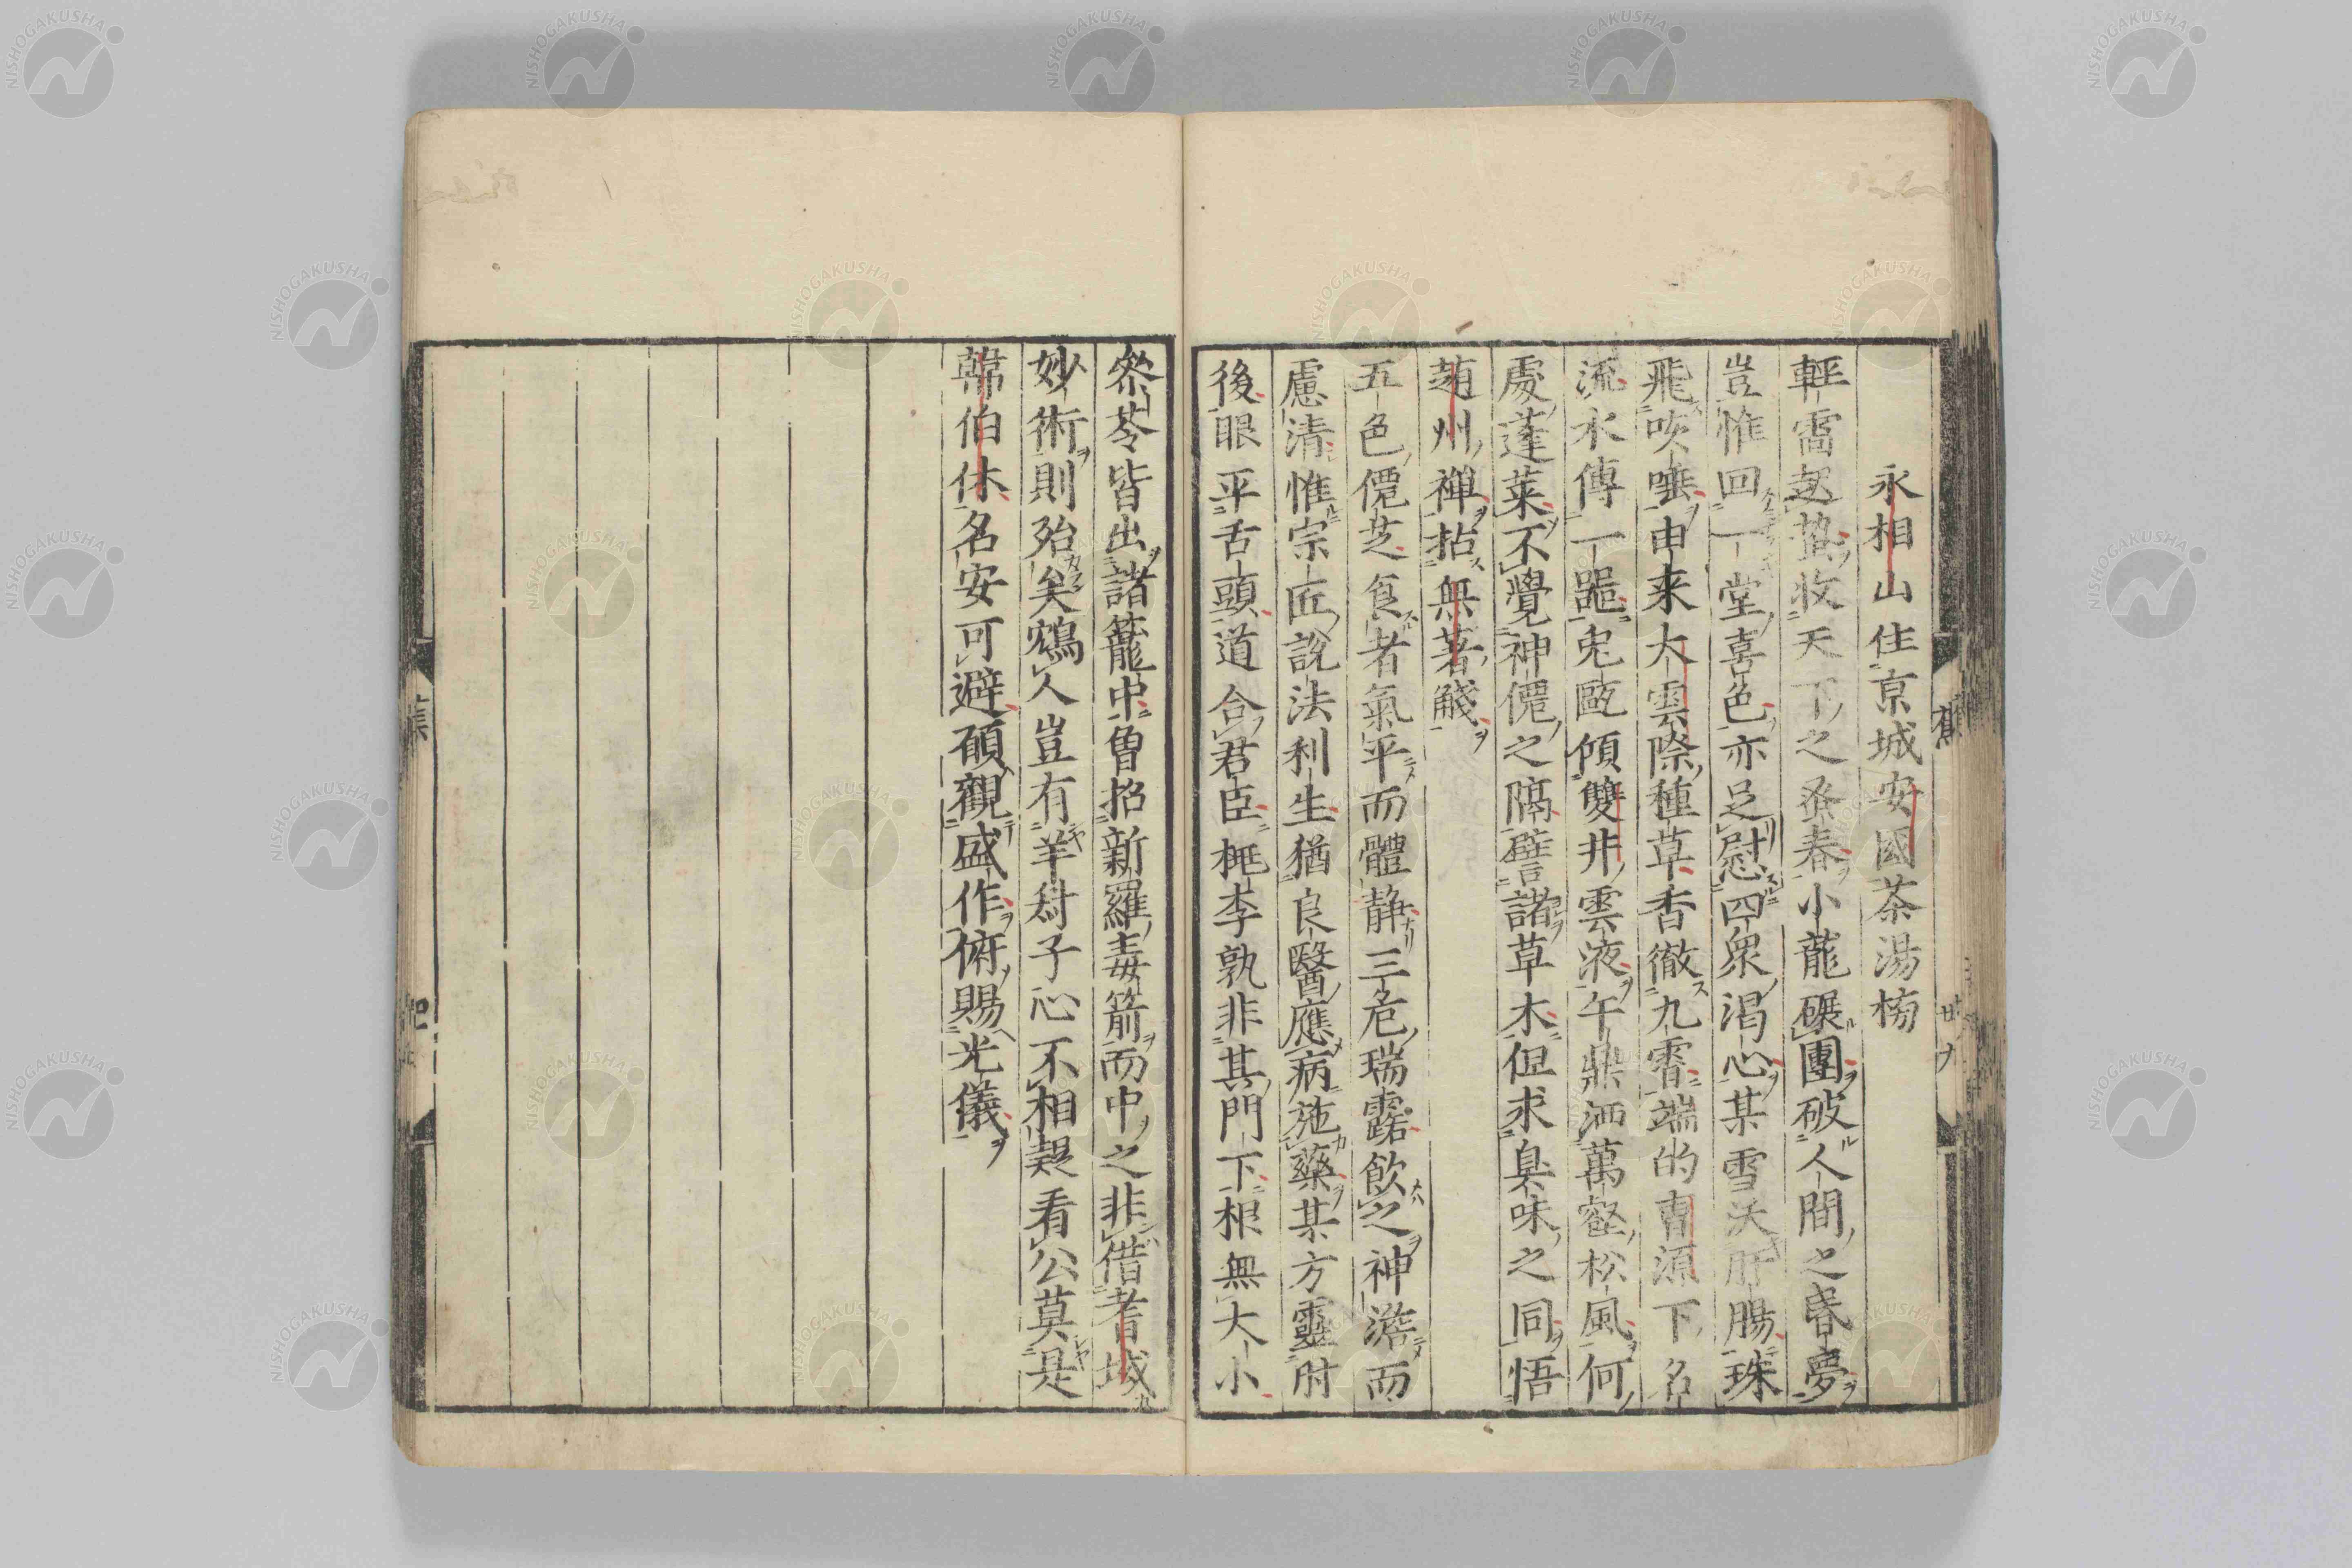 永相山住京城安國茶湯榜
輕雷起蟄收天下之蚤春小龍碾團破人間之昏夢
豈惟回一堂喜色亦足慰四衆渇心某雪沃肝腸珠
飛咳唾由来大雲際種草香徹九霄端的曺源下名
流水傳一器兎甌傾雙井雲液午鼎洒萬壑松風何
處蓬莱不覺神僊之隔譬諸草木但求臭味之同悟
趙州禪拈無著觥
五色僊芝食者氣平而體静三危瑞露飲之神澹而
慮清惟宗匠説法利生猶良醫應病施藥某方靈肘
後眼平舌頭道合君臣桃李孰非其門下根無大小
叅苓皆出諸籠中曽招新羅毒箭而中之非借耆域
妙術則殆矣鴆人豈有羊尌子心不相疑看公莫是
韓伯休名安可避碩觀盛作俯賜光儀